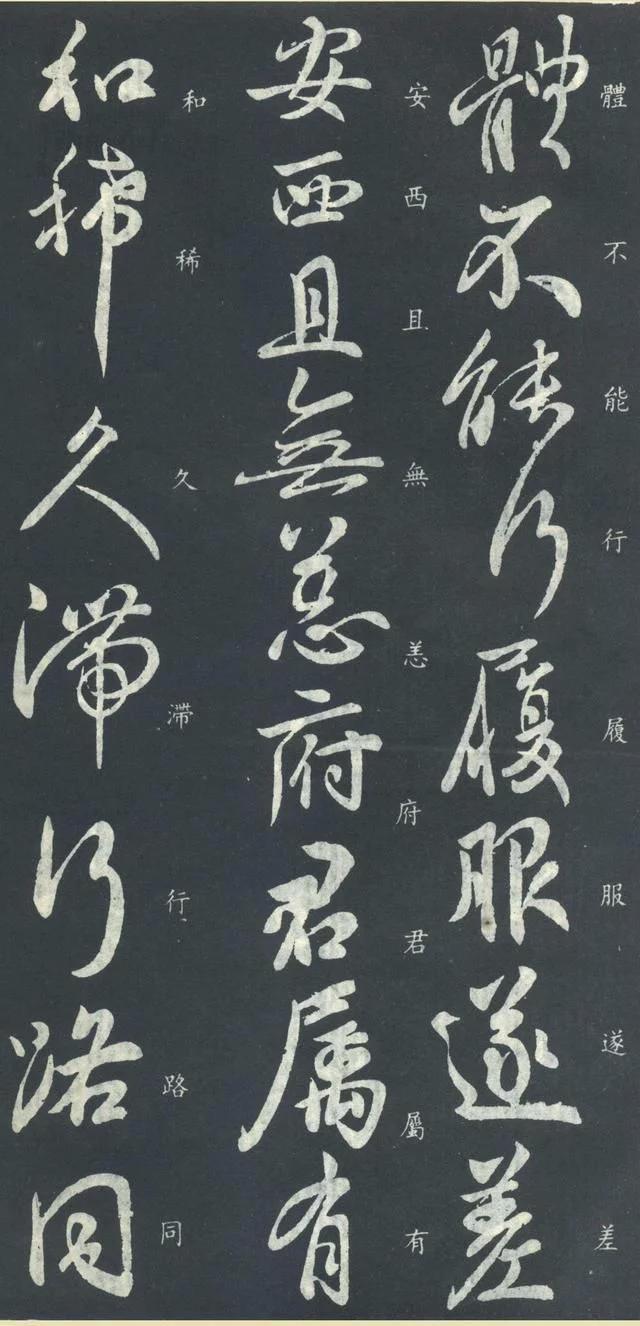 體不能行履服遂差
體不能行履服遂差
安西且無恙府君屬有
安西且無恙府君屬有
和稀久滯行路同
和稀久滯行路同